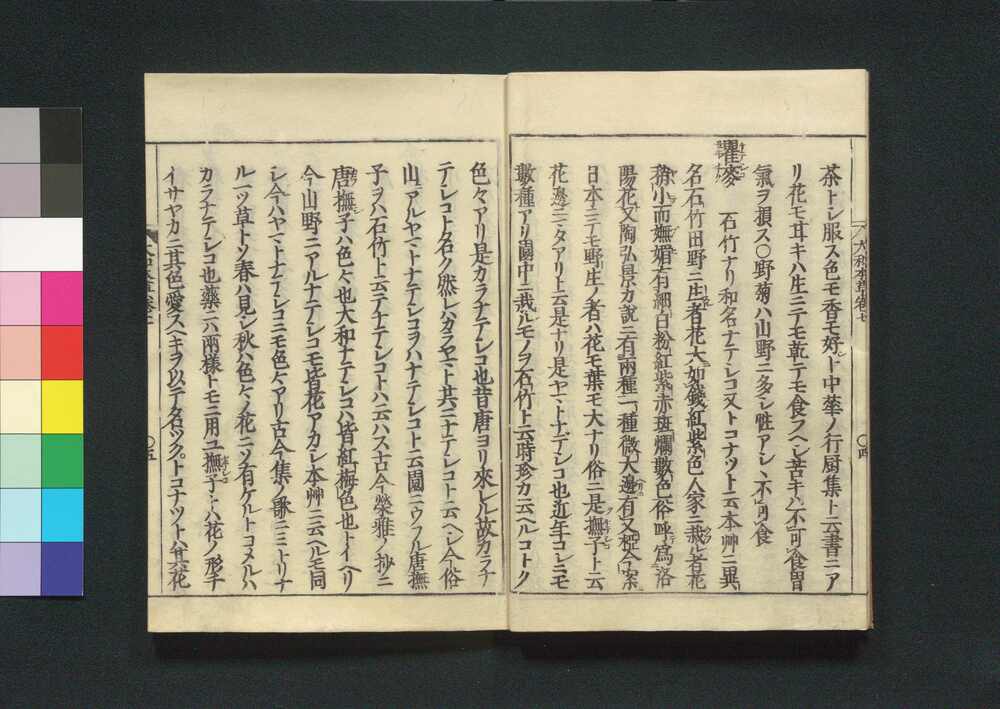 茶トシ服ス色モ香モ好シト中華ノ行厨集ト云書ニア
リ花モ耳キハ生ニテモ乾テモ食フヘシ苦キハ不可食胃
氣ヲ損ス〇野菊ハ山野ニ多シ性アシヽ不可食
瞿麥 石竹ナリ和名ナテシコ又トコナツト云本艸ニ異
名石竹田野ニ生者花大如錢紅紫色人家ニ栽ル者花
稍小而嫵媚有細白粉紅紫赤斑爛數色俗呼爲洛
陽花又陶弘景カ説ニ有兩種一種微大邊有又椏今案
日本ニテモ野生ノ者ハ花モ葉モ大ナリ俗ニ是撫子ト云
花邊ニミタアリト云是ナリ是ヤマトナテシコ也近年コレニモ
數種アリ園中ニ栽ルモノヲ石竹ト云時珍カ云ヘルコトク
色々アリ是カラナテシコ也昔唐ヨリ來レル故カラナ
テシコト名ク然レハカラヤマト共ニナテシコト云ヘシ今俗
山ニアルヤマトナテシコヲハナテシコト云園ニウフル唐撫
子ヲハ石竹ト云テナテシコトハ云ハス古今榮雅ノ抄ニ
唐撫子ハ色々也大和ナテシコハ皆紅梅色也トイヘリ
今山野ニアルナテシコモ皆花アカシ本艸ニ云ヘルモ同
シ今ハヤマトナテシコニモ色々アリ古今集ノ歌ニミトリナ
ル一ツ草トソ春ハ見シ秋ハ色々ノ花ニソ有ケルトコメルハ
カラナテシコ也藥ニハ兩樣トモニ用ユ撫子トハ花ノ形チ
イサヤカニ其色愛スヘキヲ以テ名ツク トコナツトハ其花